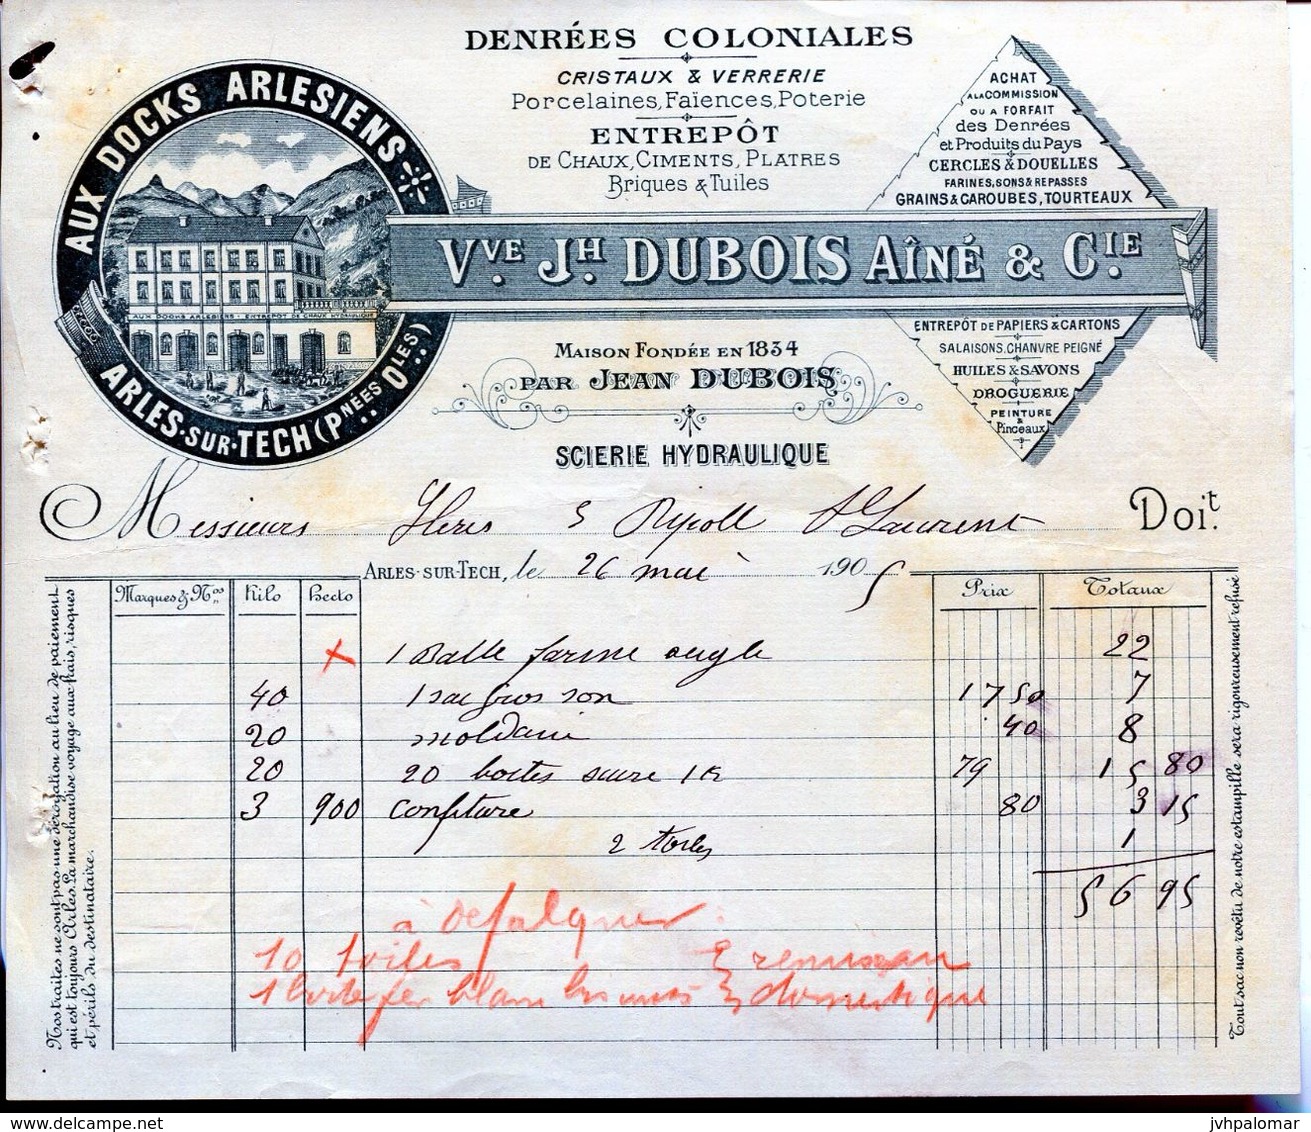 DENRÉES COLONIALES
CRISTAUX & VERRERIE
Porcelaines, Faïences, Poterie
ENTREPÔT
DE CHAUX, CIMENTS, PLATRES
Briques & Tuiles
AUX DOCKS ARLESIENS
AUX DOCKS ARLESIENS · ENTREPOT DE CHAUX
ARLES-SUR-TECH (PNÉES OLES)
ACHAT
A LA COMMISSION
OU A FORFAIT
des Denrées
et Produits du Pays
CERCLES & DOUELLES
FARINES, SONS & REPASSES
GRAINS & CAROUBES, TOURTEAUX
VVE JH. DUBOIS AÎNÉ & CIE.
ENTREPÔT DE PAPIERS & CARTONS
SALAISONS, CHANVRE PEIGNÉ
HUILES & SAVONS
DROGUERIE
PEINTURE
&
Pinceaux
MAISON FONDÉE EN 1834
PAR JEAN DUBOIS
SCIERIE HYDRAULIQUE
Messieurs Ripoll St Laurent Doit.
ARLES-SUR-TECH, le 26 mai 1905
Marques & Nos Kilo Hecto Prix Totaux
x 1 Balle farine 22
40 1 sac gros son 17 50 7
20 40 8
20 20 boites sucre 1K 79 15 80
3 900 confiture 80 3 15
2 toiles 1
56 95
à defalquer
10 toiles
domestique
Nos traites ne sont pas une dérogation au lieu de paiement
qui est toujours Arles. La marchandise voyage aux frais, risques
et périls du destinataire.
Tout sac non revêtu de notre estampille sera rigoureusement refusé
jvhpalomar